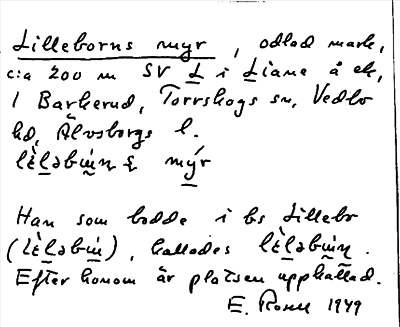 Lilleborns myr, odlad mark,
c:a 200 m SV L i Liane å ek,
1 Barkerud, Torrskogs sn, Vedbo
hd, Älvsborgs l.
lèləbu̇n ʂ mýr
Han som bodde i bs Lillebo
(lèləbu̇), kallades lèləbu̇n.
Efter honom är platsen uppkallad.
E. Rosn 1949